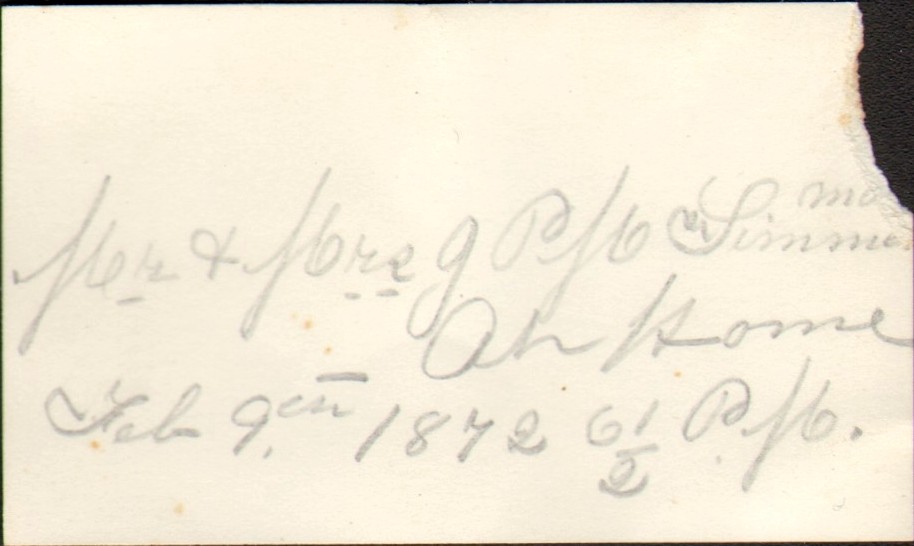 Mr & Mrs J P M Simmo
At Home
Feb 9th 1872 6 1/2 P.M.